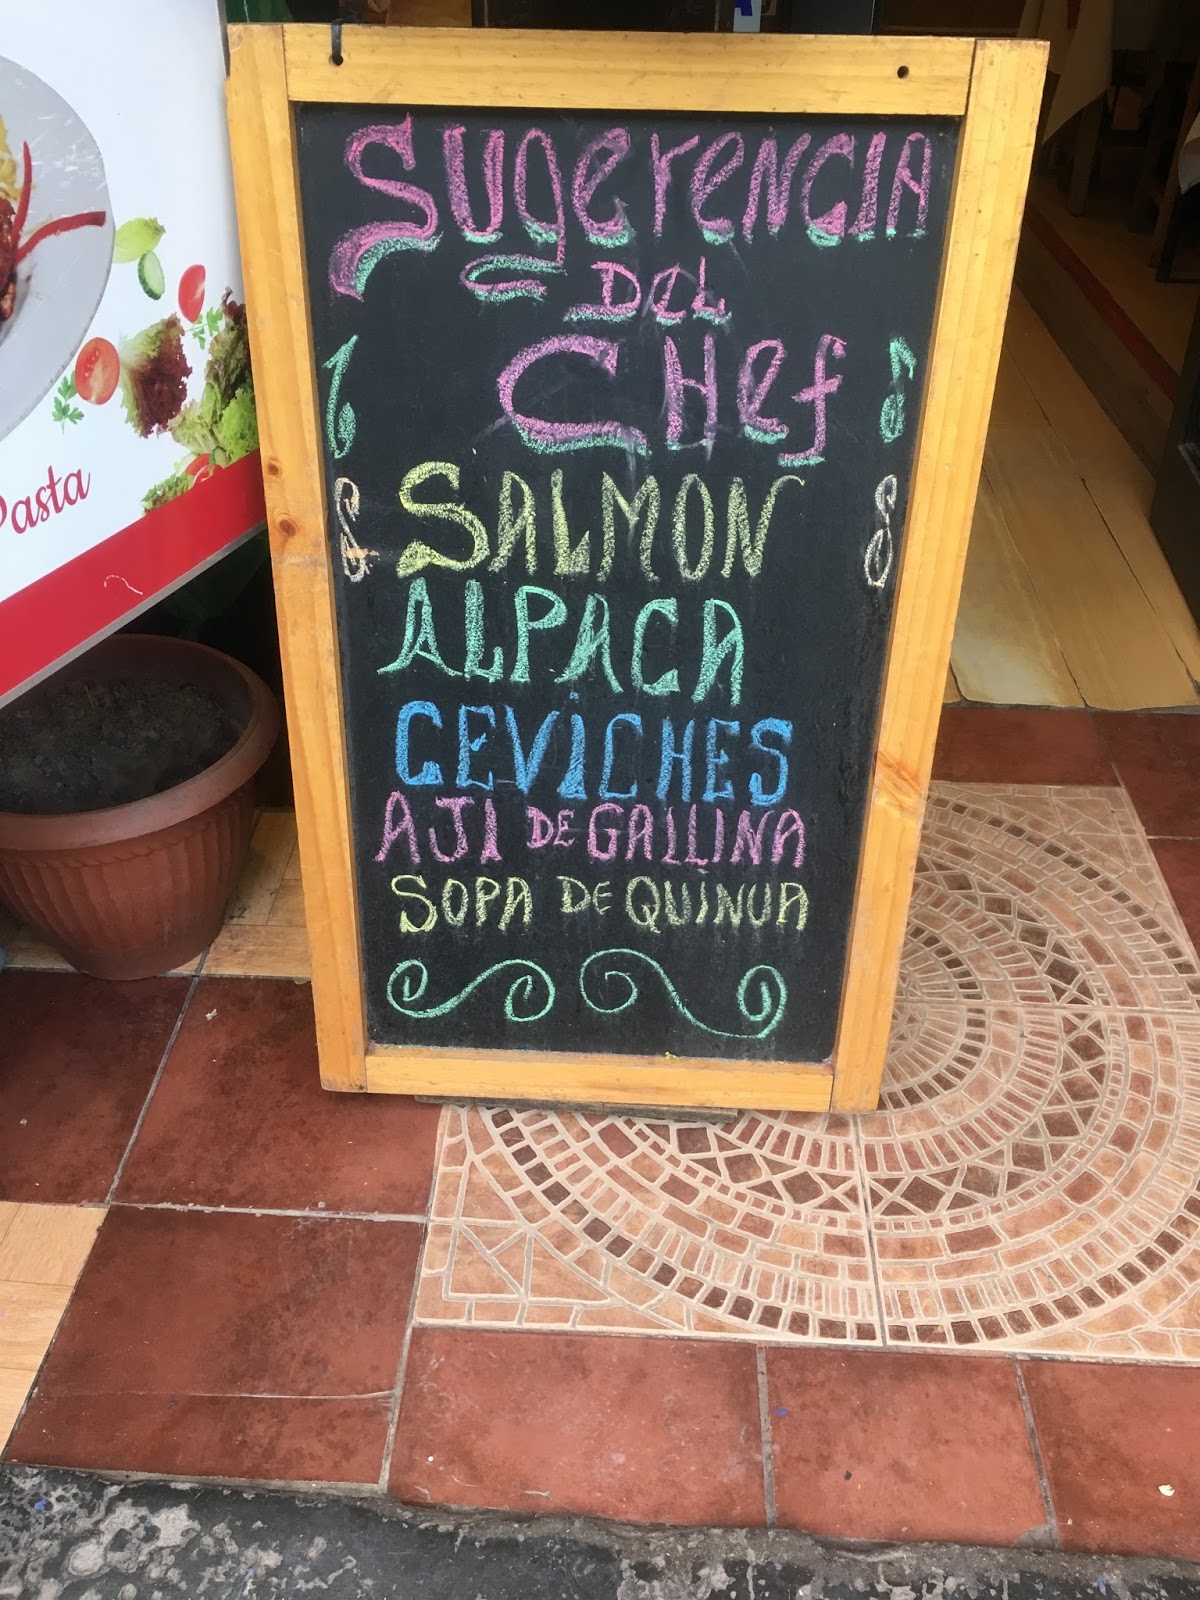 Sugerencia
Del
Chef
SALMON
ALPACA
CEVICHES
AJI DE GALLINA
SOPA DE QUINUA
Pasta